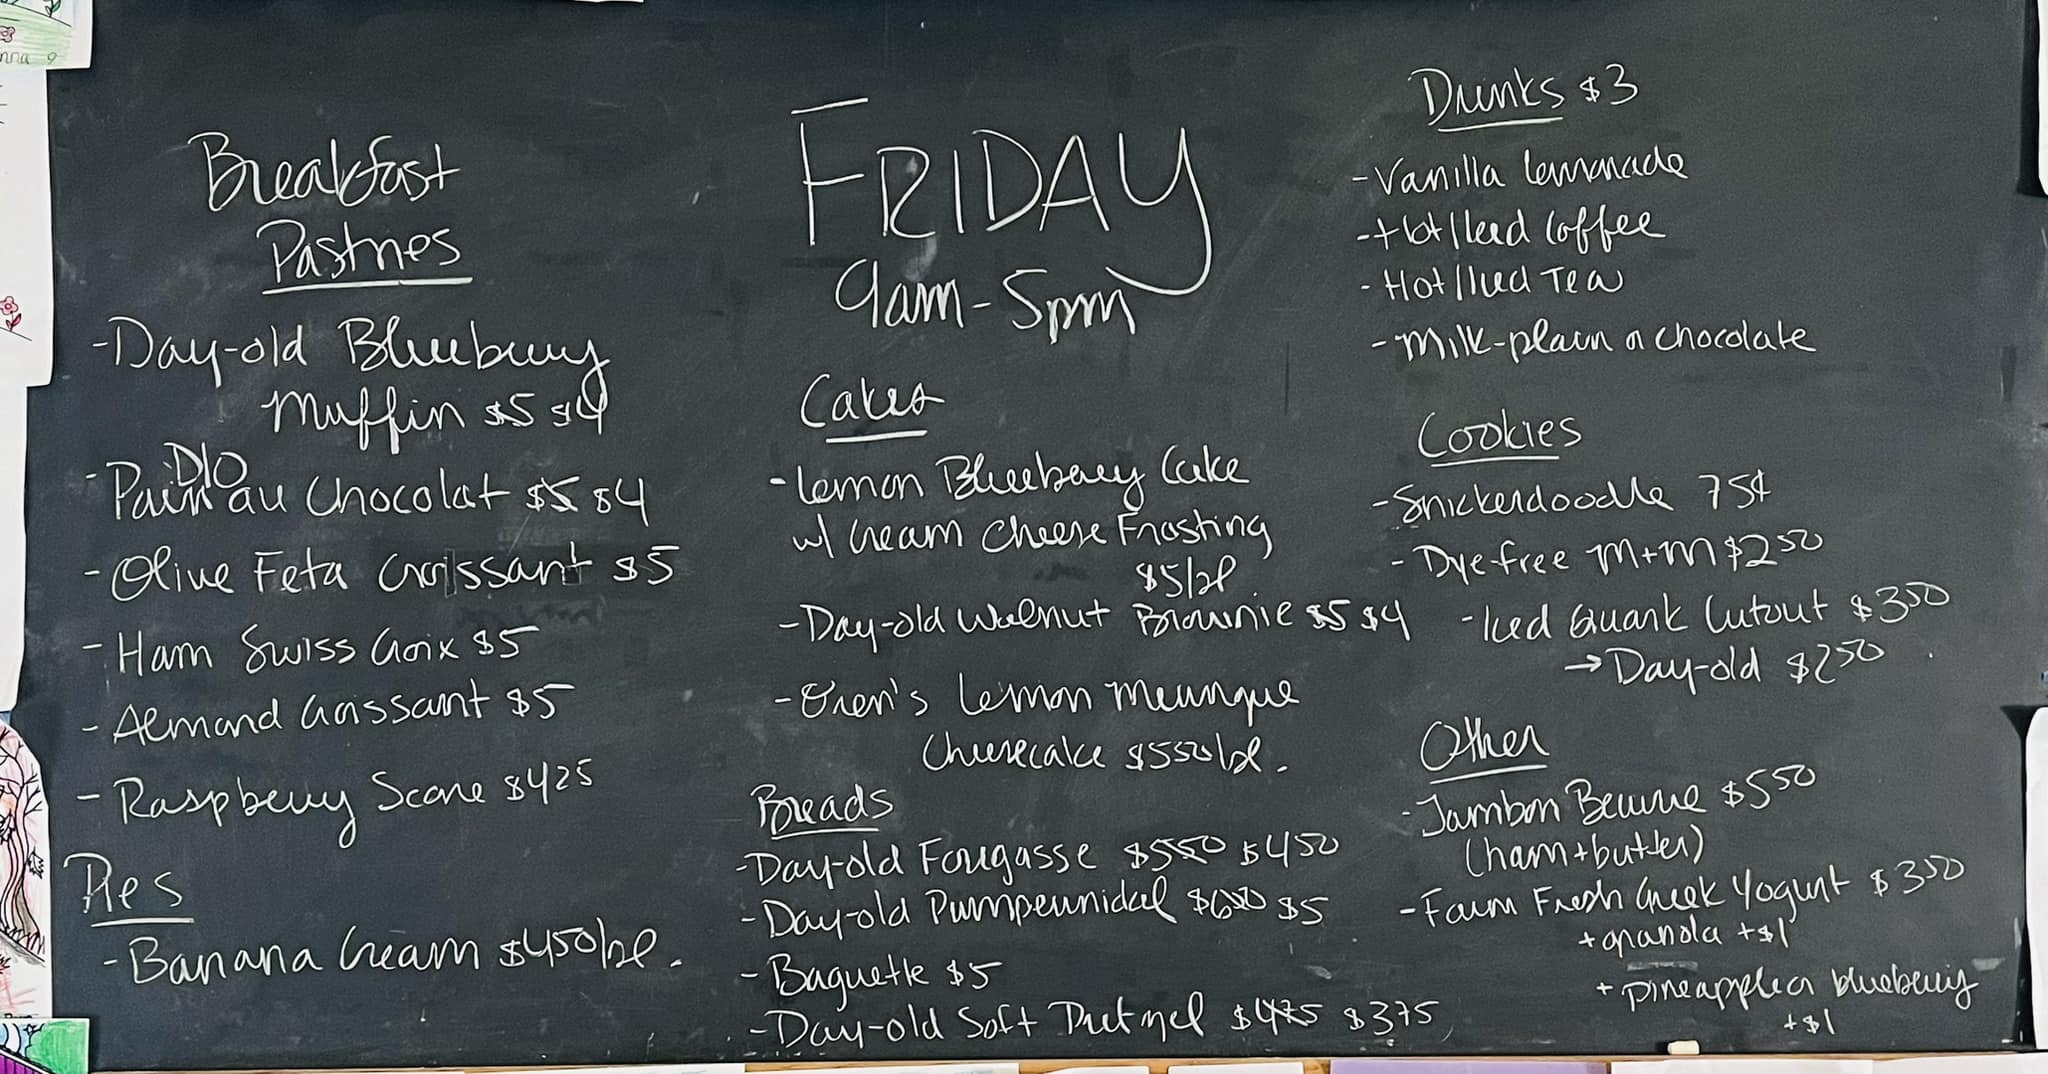 Breakfast
Pastries
-Day-old Blueberry
Muffin $5 $4
D/O
-Pain au Chocolat $5 $4
-Olive Feta Croissant $5
-Ham Swiss Croix $5
-Almond Croissant $5
-Raspberry Scone $4 25
Pies
-Banana Cream $4 50/sl.
FRIDAY
9am-5pm
Cakes
-Lemon Blueberry Cake
w/ Cream Cheese Frosting
$5/sl
-Day-old Walnut Brownie $5 $4
-Oren's Lemon Meringue
Cheesecake $5 50/sl.
Breads
-Day-old Fougasse $5 50 $4 50
-Day-old Pumpernickel $6 50 $5
-Baguette $5
-Day-old Soft Pretzel $4 75 $3 75
Drinks $3
-Vanilla Lemonade
-Hot/Iced Coffee
-Hot/Iced Tea
-Milk-plain or chocolate
Cookies
-Snickerdoodle 75¢
-Dye-free M+M $2 50
-Iced Quark Cutout $3 50
→Day-old $2 50
Other
-Jambon Beurre $5 50
(ham+butter)
-Farm Fresh Greek Yogurt $3 50
+granola +$1
+pineapple or blueberry
+$1